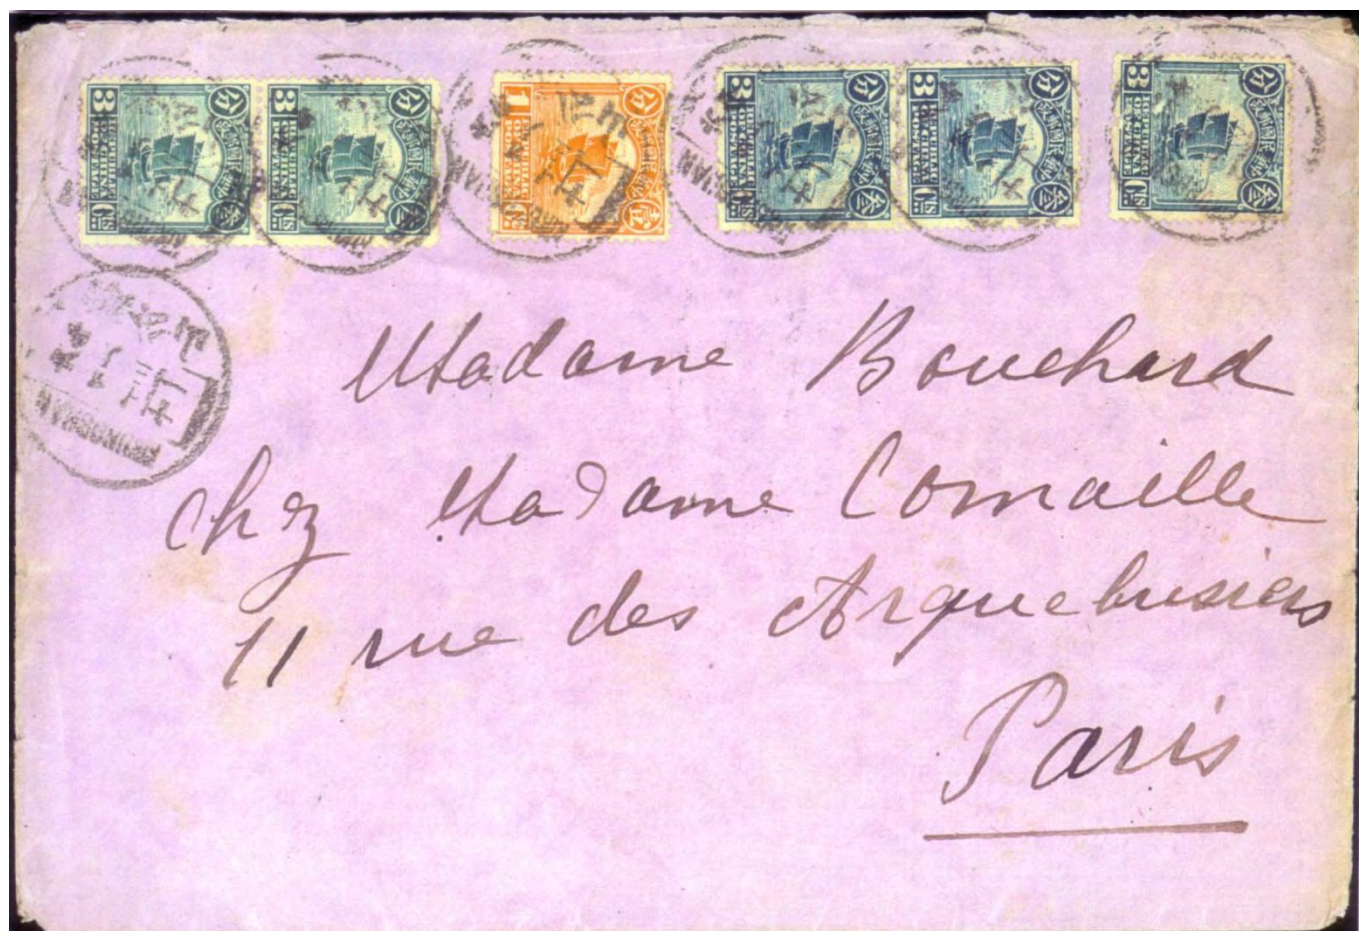 3 分 CTS 叁
3 分 CTS 叁
1 分
3 分 CTS 叁
3 分 CTS 叁
3 分 CTS 叁
Madame Bouchard
chez Madame Cornaille
11 rue des Arquebusiers
Paris